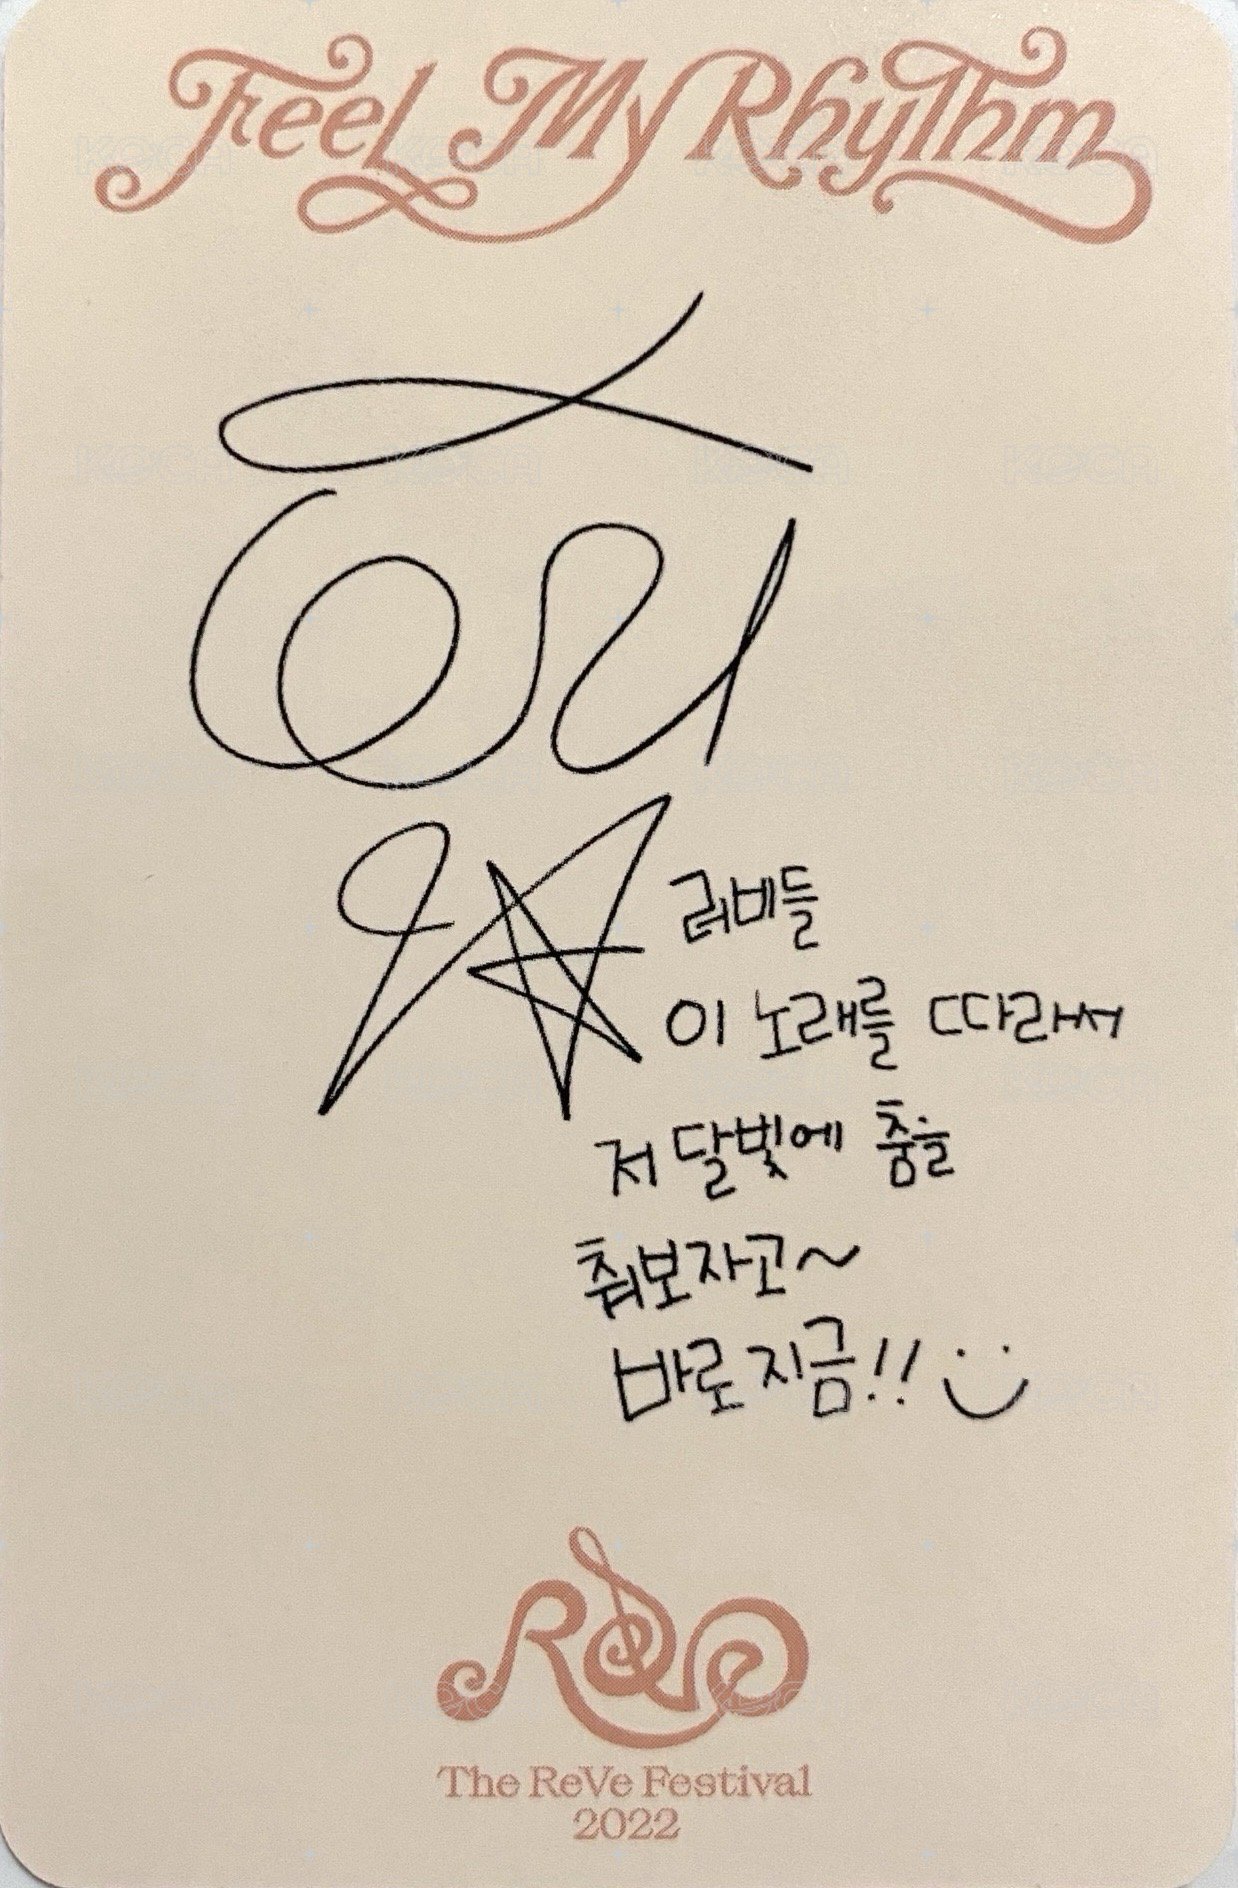 Feel My Rhythm
러비들
이 노래를 따라서
저 달빛에 춤을
춰보자고~
바로 지금!!
ReVe
The ReVe Festival
2022